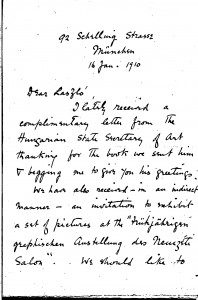 92 Schelling Strasse
München
16 Jan. 1910
Dear Laszló
I lately received a
complimentary letter from the
Hungarian State Secretary of Art
thanking for the book we sent him
& begging me to give you his greetings.
We have also received – in an indirect
manner – an invitation to exhibit
a set of pictures at the "Frühjährigen
graphischen Austellung des
Salon". We should like to